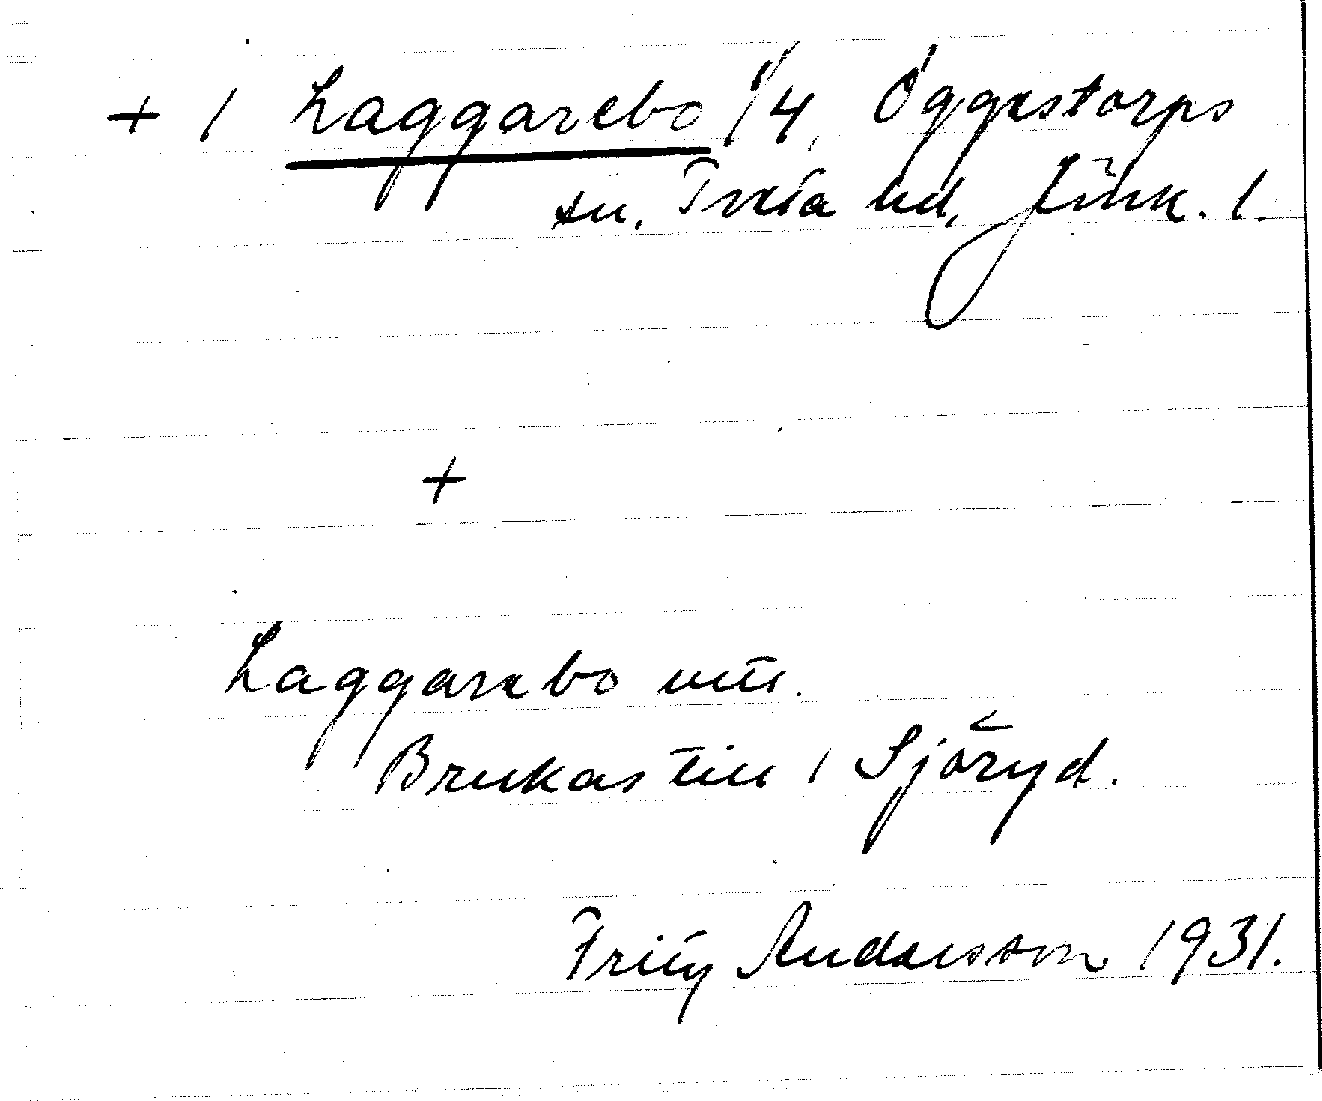 + 1 Laggarebo 1/4, Öggestorps
sn, Tveta hd, Jönk. l.
+
Laggarebo utä.
Brukas till 1 Sjöryd.
Fritz Andersson 1931.